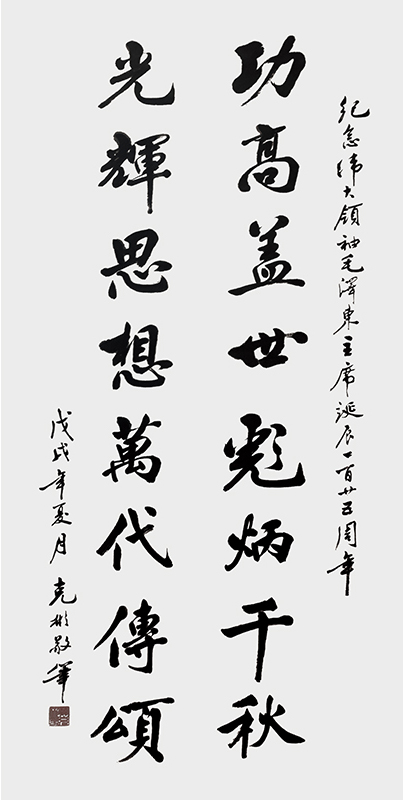 紀念偉大領袖毛澤東主席誕辰一百廿五周年
功高盖世彪炳千秋
光輝思想萬代傳頌
戊戌年夏月 克彬敬筆